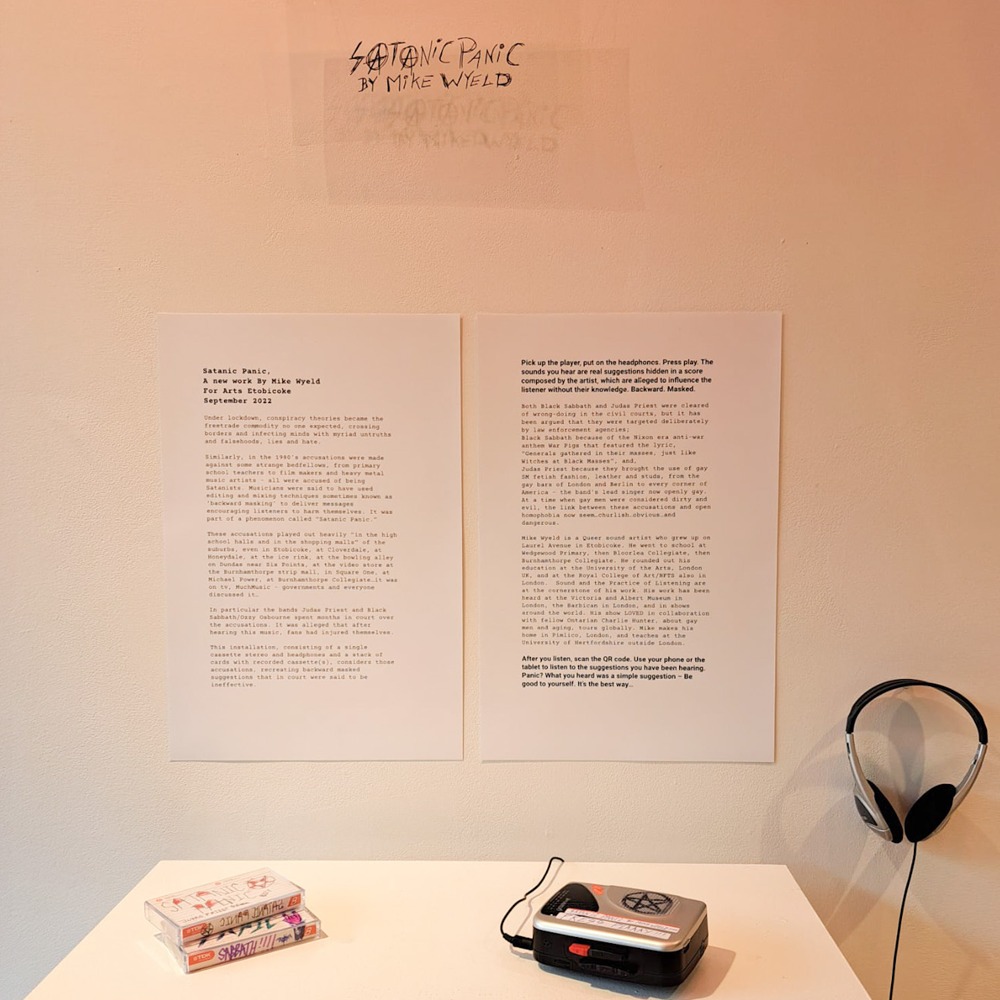 SATANIC PANIC
BY MIKE WYELD
Satanic Panic,
A new work By Mike Wyeld
For Arts Etobicoke
September 2022
Under lockdown, conspiracy theories became the
freetrade commodity no one expected, crossing
borders and infecting minds with myriad untruths
and falsehoods, lies and hate.
Similarly, in the 1980's accusations were made
against some strange bedfellows, from primary
school teachers to film makers and heavy metal
music artists - all were accused of being
Satanists. Musicians were said to have used
editing and mixing techniques sometimes known as
'backward masking' to deliver messages
encouraging listeners to harm themselves. It was
part of a phenomenon called "Satanic Panic."
These accusations played out heavily "in the high
school halls and in the shopping malls" of the
suburbs, even in Etobicoke, at Cloverdale, at
Honeydale, at the ice rink, at the bowling alley
on Dundas near Six Points, at the video store at
the Burnhamthorpe strip mall, in Square One, at
Michael Power, at Burnhamthorpe Collegiate…it was
on tv, MuchMusic - governments and everyone
discussed it.
In particular the bands Judas Priest and Black
Sabbath/Ozzy Osbourne spent months in court over
the accusations. It was alleged that after
hearing this music, fans had injured themselves.
This installation, consisting of a single
cassette stereo and headphones and a stack of
cards with recorded cassette(s), considers those
accusations, recreating backward masked
suggestions that in court were said to be
ineffective.
Pick up the player, put on the headphones. Press play. The
sounds you hear are real suggestions hidden in a score
composed by the artist, which are alleged to influence the
listener without their knowledge. Backward. Masked.
Both Black Sabbath and Judas Priest were cleared
of wrong-doing in the civil courts, but it has
been argued that they were targeted deliberately
by law enforcement agencies;
Black Sabbath because of the Nixon era anti-war
anthem War Pigs that featured the lyric,
"Generals gathered in their masses, just like
Witches at Black Masses", and,
Judas Priest because they brought the use of gay
SM fetish fashion, leather and studs, from the
gay bars of London and Berlin to every corner of
America - the band's lead singer now openly gay.
At a time when gay men were considered dirty and
evil, the link between these accusations and open
homophobia now seem…churlish…obvious…and
dangerous.
Mike Wyeld is a Queer sound artist who grew up on
Laurel Avenue in Etobicoke. He went to school at
Wedgewood Primary, then Bloorlea Collegiate, then
Burnhamthorpe Collegiate. He rounded out his
education at the University of the Arts, London
UK, and at the Royal College of Art/NFTS also in
London. Sound and the Practice of listening are
at the cornerstone of his work. His work has been
heard at the Victoria and Albert Museum in
London, the Barbican in London, and in shows
around the world. His show LOVED in collaboration
with fellow Ontarian Charlie Hunter, about gay
men and aging, tours globally. Mike makes his
home in Pimlico, London, and teaches at the
University of Hertfordshire outside London.
After you listen, scan the QR code. Use your phone or the
tablet to listen to the suggestions you have been hearing.
Panic? What you heard was a simple suggestion – Be
good to yourself. It's the best way…
SATANIC
PANIC
TDK
TDK
SABBATH!!!!